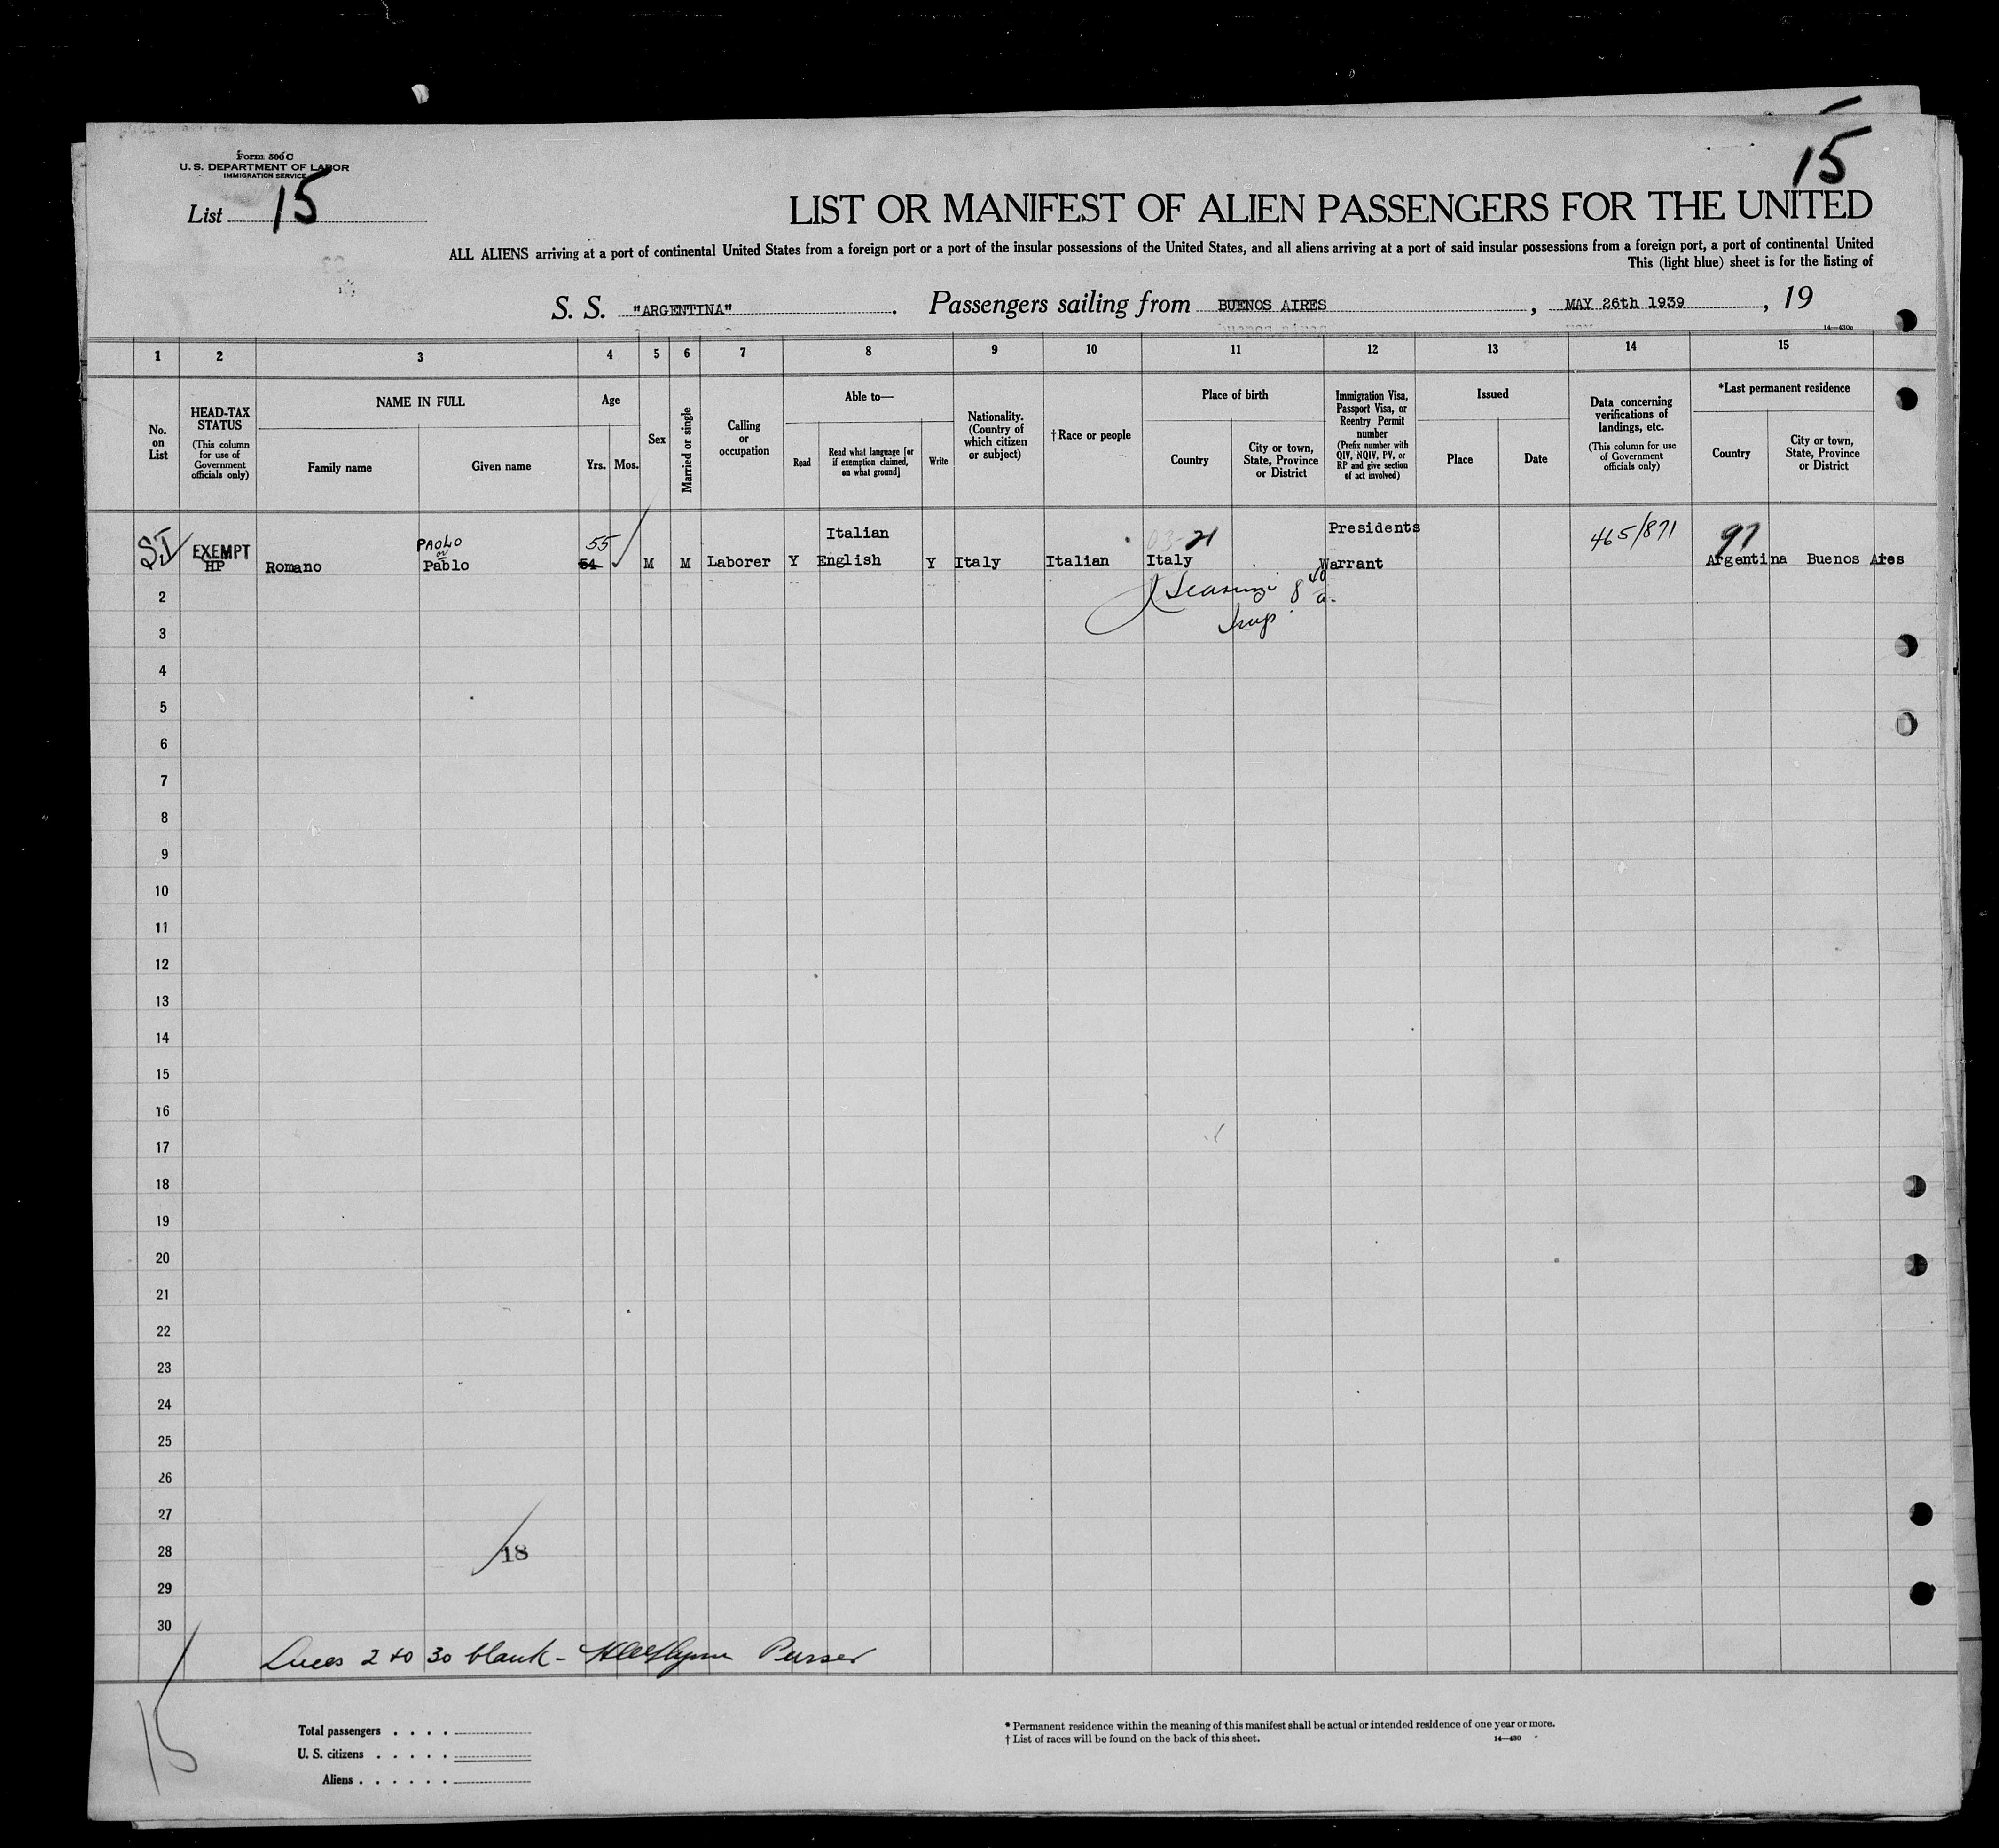 Form 500 C
U. S. DEPARTMENT OF LABOR
IMMIGRATION SERVICE
15
List 15
LIST OR MANIFEST OF ALIEN PASSENGERS FOR THE UNITED
ALL ALIENS arriving at a port of continental United States from a foreign port or a port of the insular possessions of the United States, and all aliens arriving at a port of said insular possessions from a foreign port, a port of continental United
This (light blue) sheet is for the listing of
S. S. "ARGENTINA". Passengers sailing from BUENOS AIRES, MAY 26th 1939, 19
14—430c
1 2 3 4 5 6 7 8 9 10 11 12 13 14 15
No. on List
HEAD-TAX STATUS
(This column for use of Government officials only)
NAME IN FULL
Family name
Given name
Age
Yrs. Mos.
Sex
Married or single
Calling or occupation
Able to—
Read
Read what language [or if exemption claimed, on what ground]
Write
Nationality. (Country of which citizen or subject)
†Race or people
Place of birth
Country
City or town, State, Province or District
Immigration Visa, Passport Visa, or Reentry Permit number
(Prefix number with QIV, NQIV, PV, or RP and give section of act involved)
Issued
Place
Date
Data concerning verifications of landings, etc.
(This column for use of Government officials only)
*Last permanent residence
Country
City or town, State, Province or District
SI EXEMPT HP Romano PAOLO or Pablo 55 54 M M Laborer Y Italian English Y Italy Italian 03-21 Italy Presidents Warrant 465/871 97 Argentina Buenos Aires
2
3
4
5
6
7
8
9
10
11
12
13
14
15
16
17
18
19
20
21
22
23
24
25
26
27
28
18
29
30
Lines 2 to 30 blank - Purser
15
Total passengers . . . .
U. S. citizens . . . . .
Aliens . . . . . .
* Permanent residence within the meaning of this manifest shall be actual or intended residence of one year or more.
† List of races will be found on the back of this sheet.
14—430